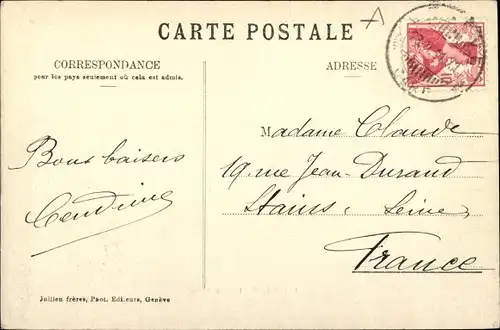 CARTE POSTALE
CORRESPONDANCE
pour les pays seulement où cela est admis.
ADRESSE
Bons baisers
Madame Claude
19, rue Jean-Durand
Stains, Seine,
France
Julien frères, Phot. Editeurs, Genève